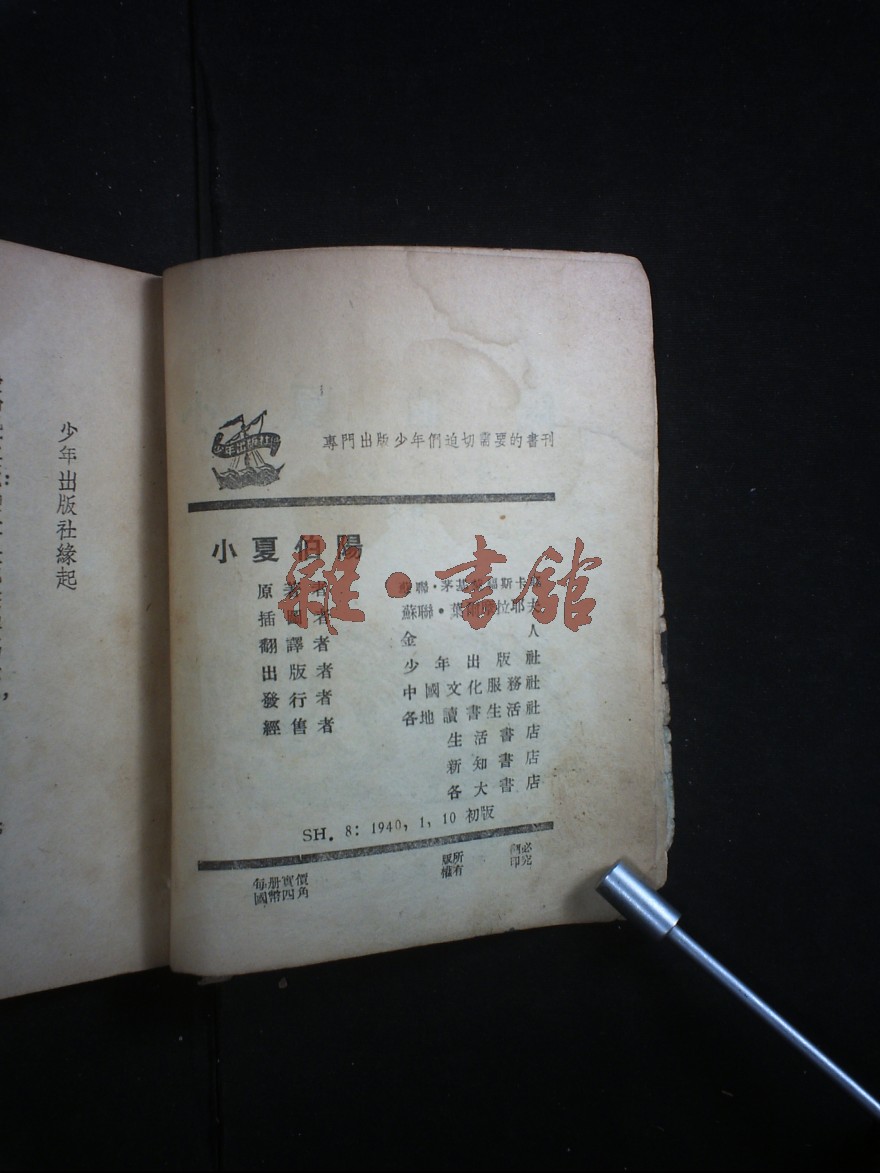 少年出版社緣起
少年出版社
專門出版少年們迫切需要的書刊
小夏伯陽
原著者 蘇聯·茅基 福斯卡
插圖者 蘇聯·葉 拉耶夫
翻譯者 金人
出版者 少年出版社
發行者 中國文化服務社
經售者 各地讀書生活社
生活書店
新知書店
各大書店
SH. 8: 1940, 1, 10 初版
每册實價
國幣四角
版所
權有
翻必
印究
雜·書館